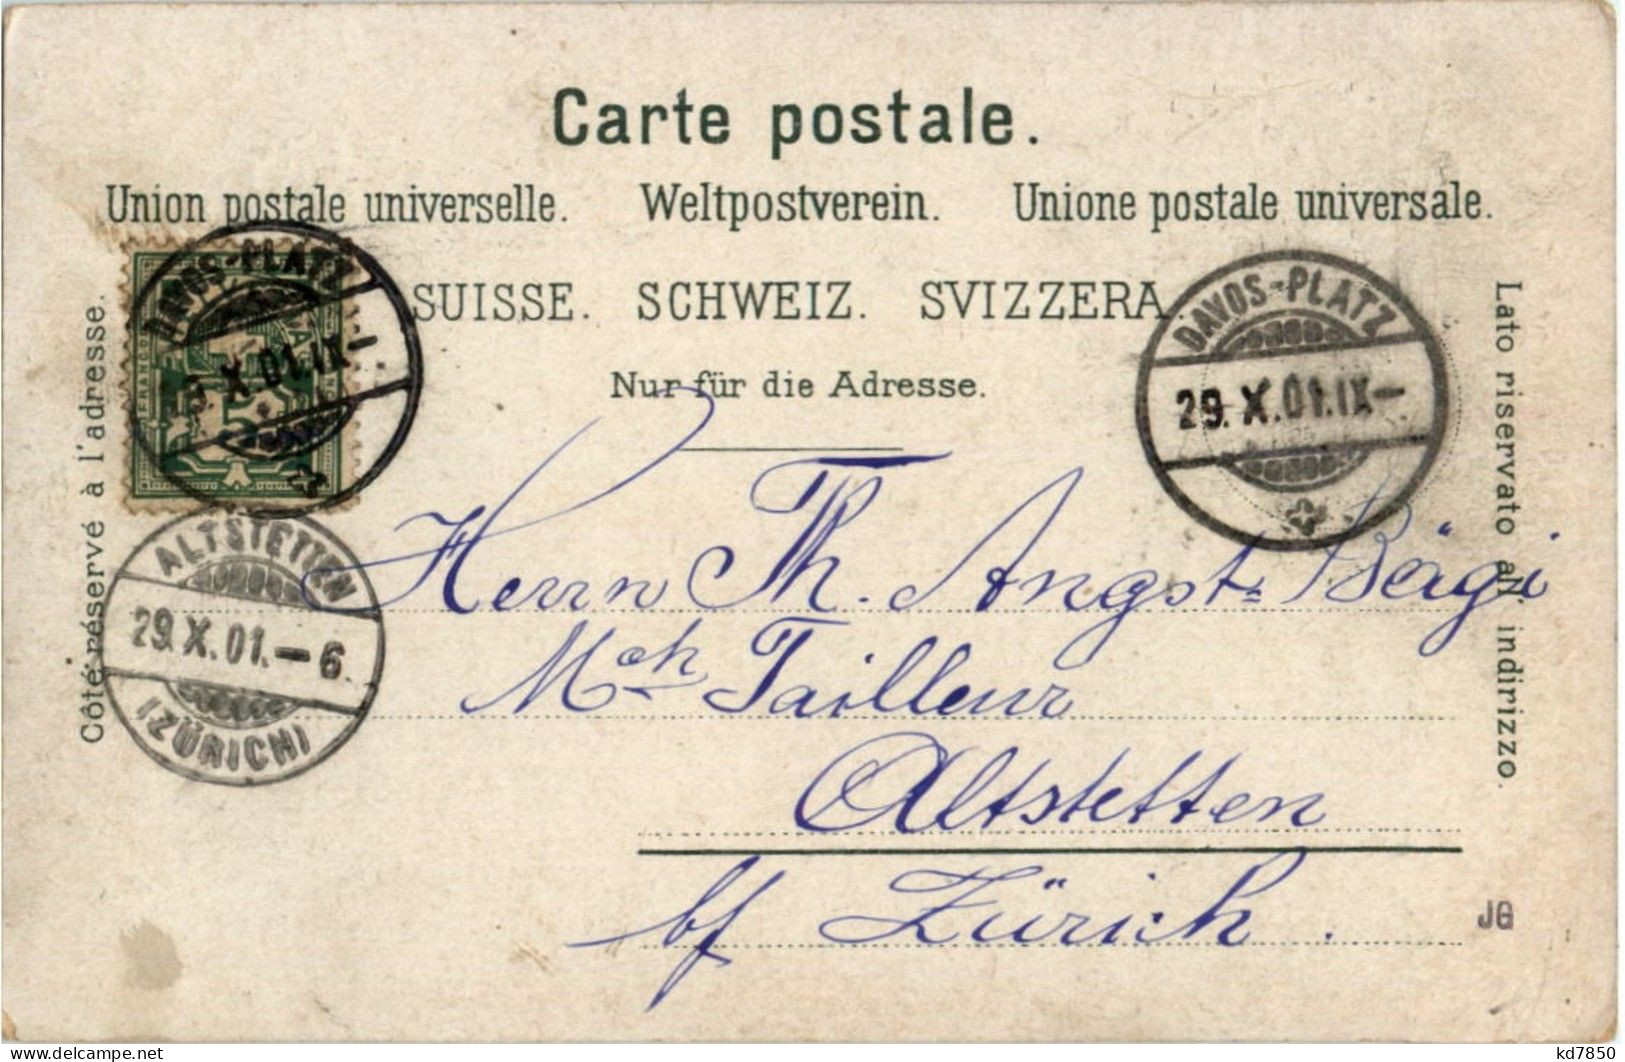 Carte postale.
Union postale universelle. Weltpostverein. Unione postale universale.
SUISSE. SCHWEIZ. SVIZZERA
Nur für die Adresse.
Côté réservé à l'adresse.
Lato riservato all' indirizzo.
FRANCO
DAVOS-PLATZ
29.X.01.IX-
DAVOS-PLATZ
29.X.01.IX-
ALTSTETTEN
29.X.01.-6
(ZÜRICH)
Herrn Th. Angst-
Mch Tailleur
Altstetten
bf Zürich.
JG
delcampe.net
kd7850